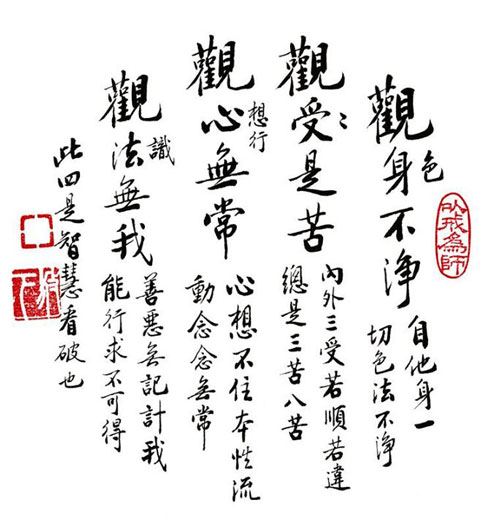 以戒為師
色
觀身不淨
自他身一
切色法不淨
〻
觀受是苦
內外三受若順若違
總是三苦八苦
想行
觀心無常
心想不住本性流
動念念無常
識
觀法無我
善惡无記計我
能行求不可得
此四是智慧看破也